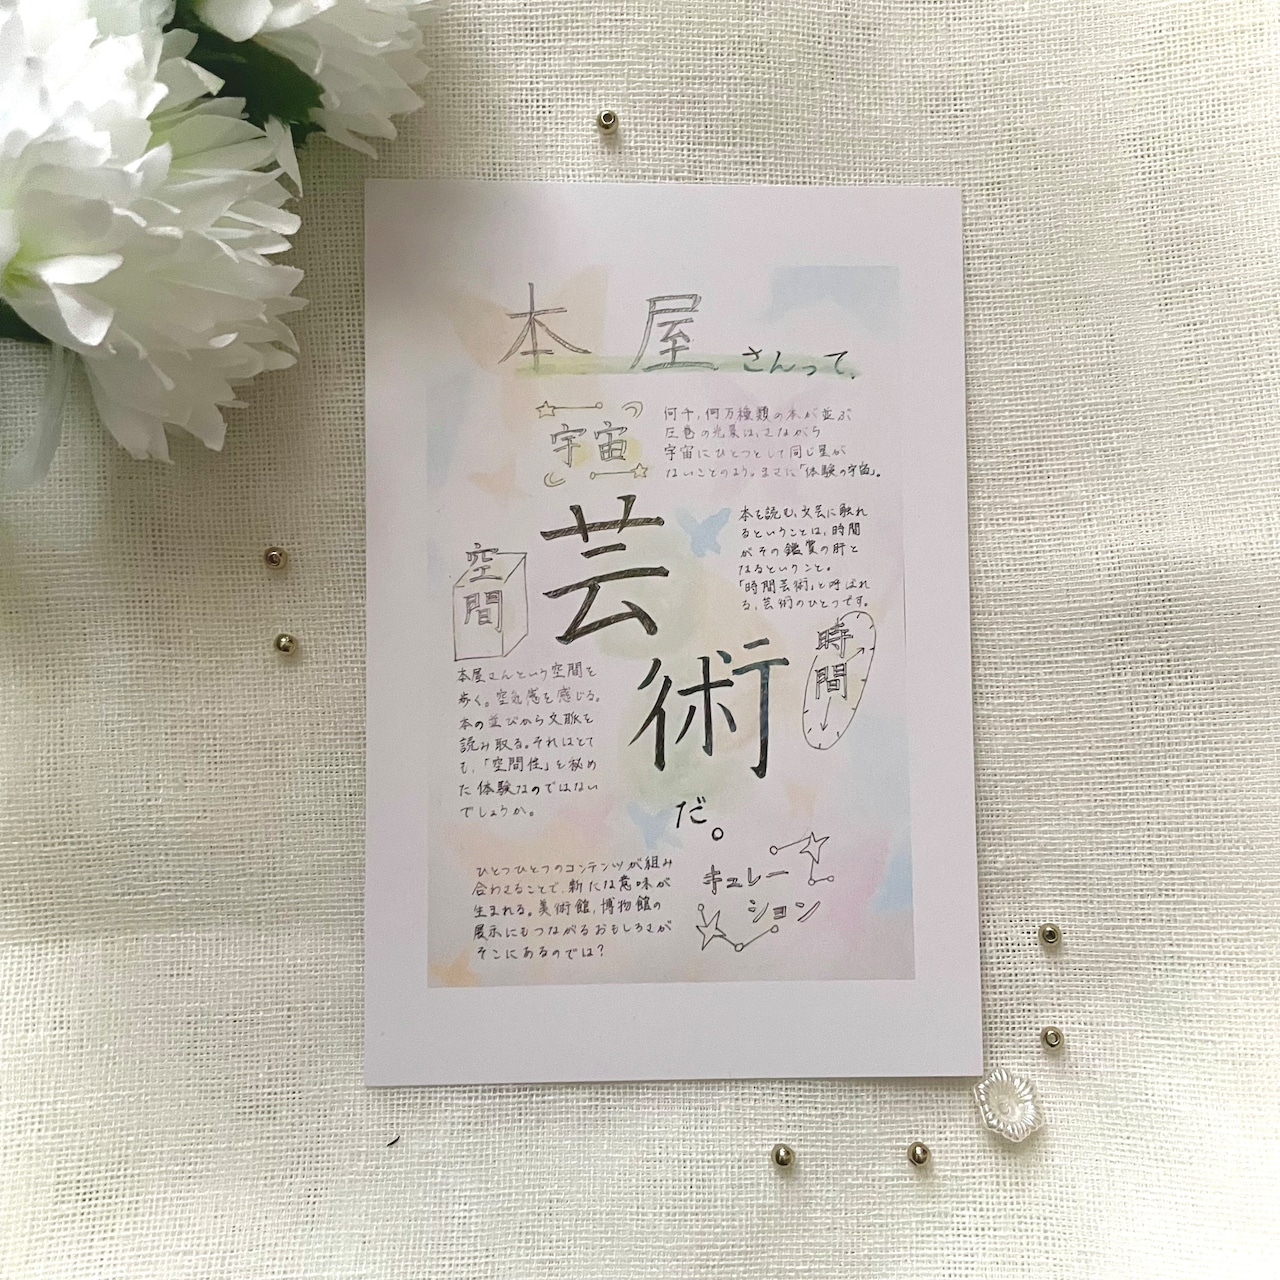 本屋さんって、
宇宙
何千、何万種類の本が並ぶ
圧巻の光景は、さながら
宇宙にひとつとして同じ星が
ないことのよう。まさに「体験の宇宙」。
芸術
だ。
本を読む、文芸に触れ
るということは、時間
がその鑑賞の肝と
なるということ。
「時間芸術」と呼ばれ
る、芸術のひとつです。
時間
空間
本屋さんという空間を
歩く。空気感を感じる。
本の並びから文脈を
読み取る。それはとて
も、「空間性」を秘め
た体験なのではない
でしょうか。
キュレー
ション
ひとつひとつのコンテンツが組み
合わさることで、新たな意味が
生まれる。美術館、博物館の
展示にもつながるおもしろさが
そこにあるのでは？